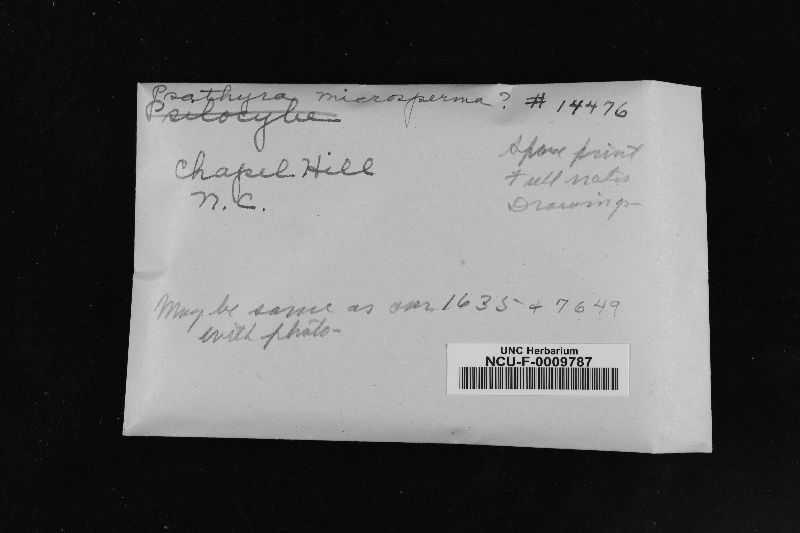 Psathyra microsperma? # 14476
Psilocybe
Chapel Hill
N.C.
Spore print
Full notes
Drawings
May be same as our 1635 + 7649
with photo-
UNC Herbarium
NCU-F-0009787